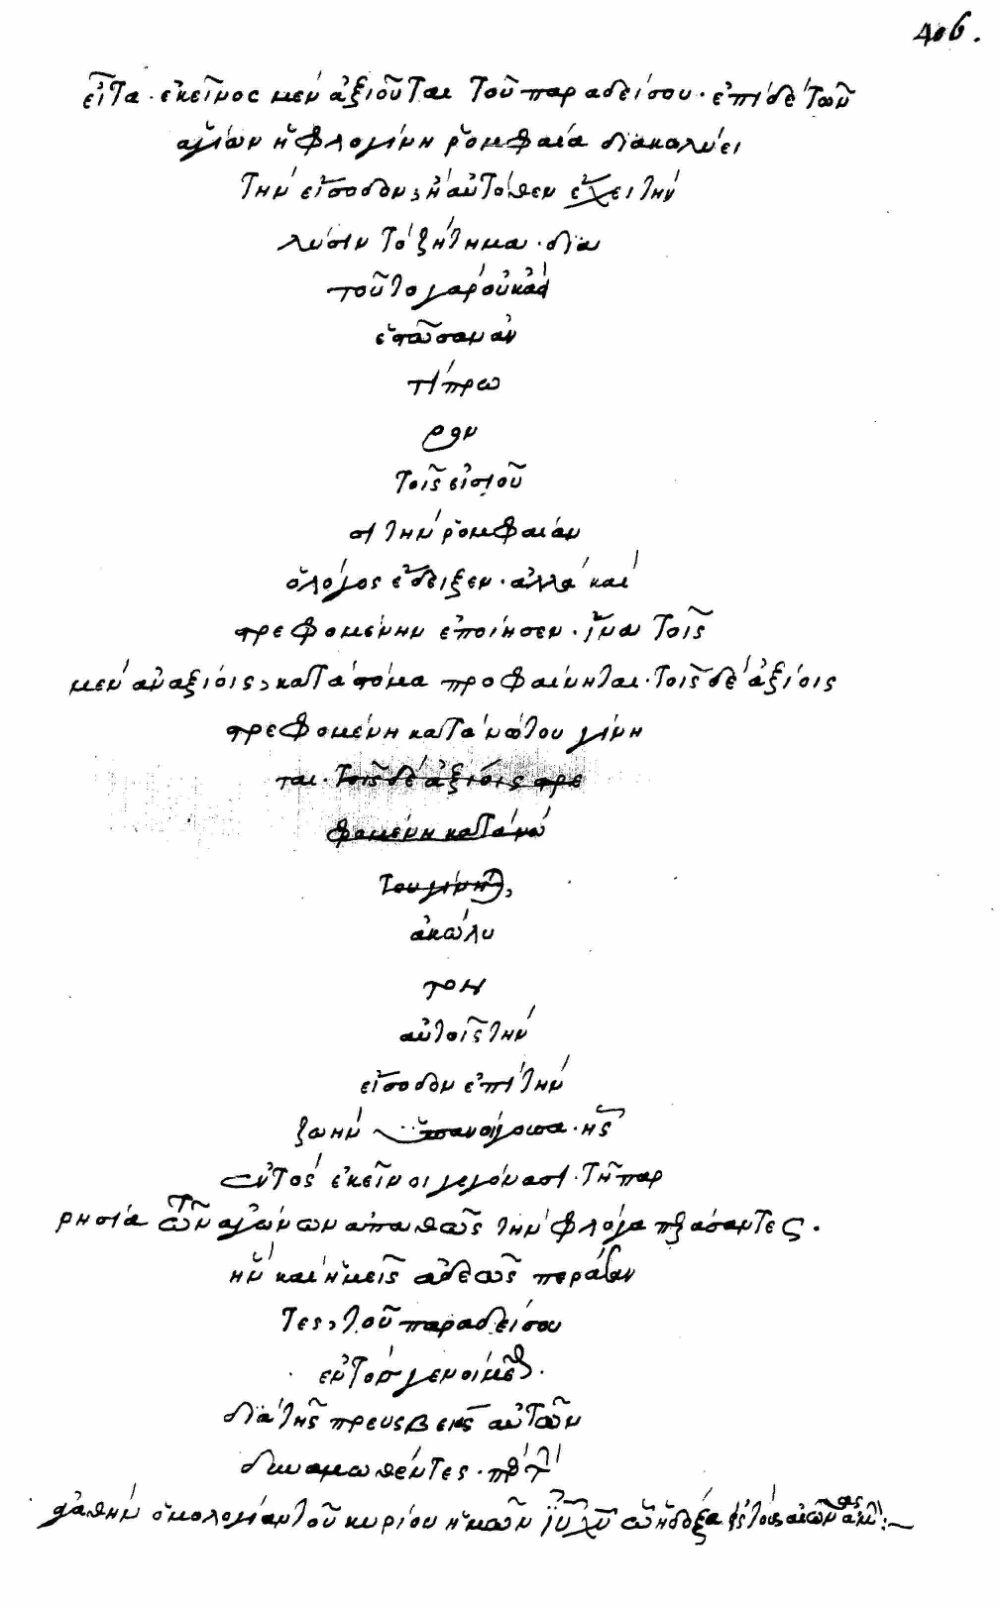 406.
εἶτα· ἐκεῖνος μὲν ἀξιοῦται τοῦ παραδείσου· ἐπὶ δὲ τῶν
ἁγίων ἡ φλογίνη ῥομφαία διακωλύει
τὴν εἴσοδον, ἢ αὐτόθεν ἔχει τὴν
λύσιν τὸ ζήτημα· διὰ
τοῦτο γὰρ οὐκ ἀεὶ
ἑστῶσαν ἀν
τιπρό
σωπον
τοῖς εἰσιοῦ
σι τὴν ῥομφαίαν
ὁ λόγος ἔδειξεν· ἀλλὰ καὶ
στρεφομένην ἐποίησεν· ἵνα τοῖς
μὲν ἀναξίοις, κατὰ στόμα προφαίνηται· τοῖς δὲ ἀξίοις
στρεφομένη κατὰ νώτου γίνη
ται· τοῖς δὲ ἀξίοις στρε
φομένη κατὰ νώ
του γίνηται,
ἀκώλυ
τον
αὐτοῖς τὴν
εἴσοδον ἐπὶ τὴν
ζωὴν ὑπανοίγουσα· ἧς
ἐντὸς ἐκεῖνοι γεγόνασι· τῇ παρ
ρησίᾳ τῶν ἀγώνων ἀπαθῶς τὴν φλόγα
ἣν καὶ ἡμεῖς ἀδεῶς περάσαν
τες, τοῦ παραδείσου
ἐντὸς γενοίμεθα·
διὰ τῆς πρευσβείας αὐτῶν
δυναμωθέντες· πρὸς τὴν
ἀγαθὴν ὁμολογίαν τοῦ κυρίου ἡμῶν ἰυ χυ ᾧ ἡ δόξα εἰς τοὺς αἰῶνας ἀμήν:~